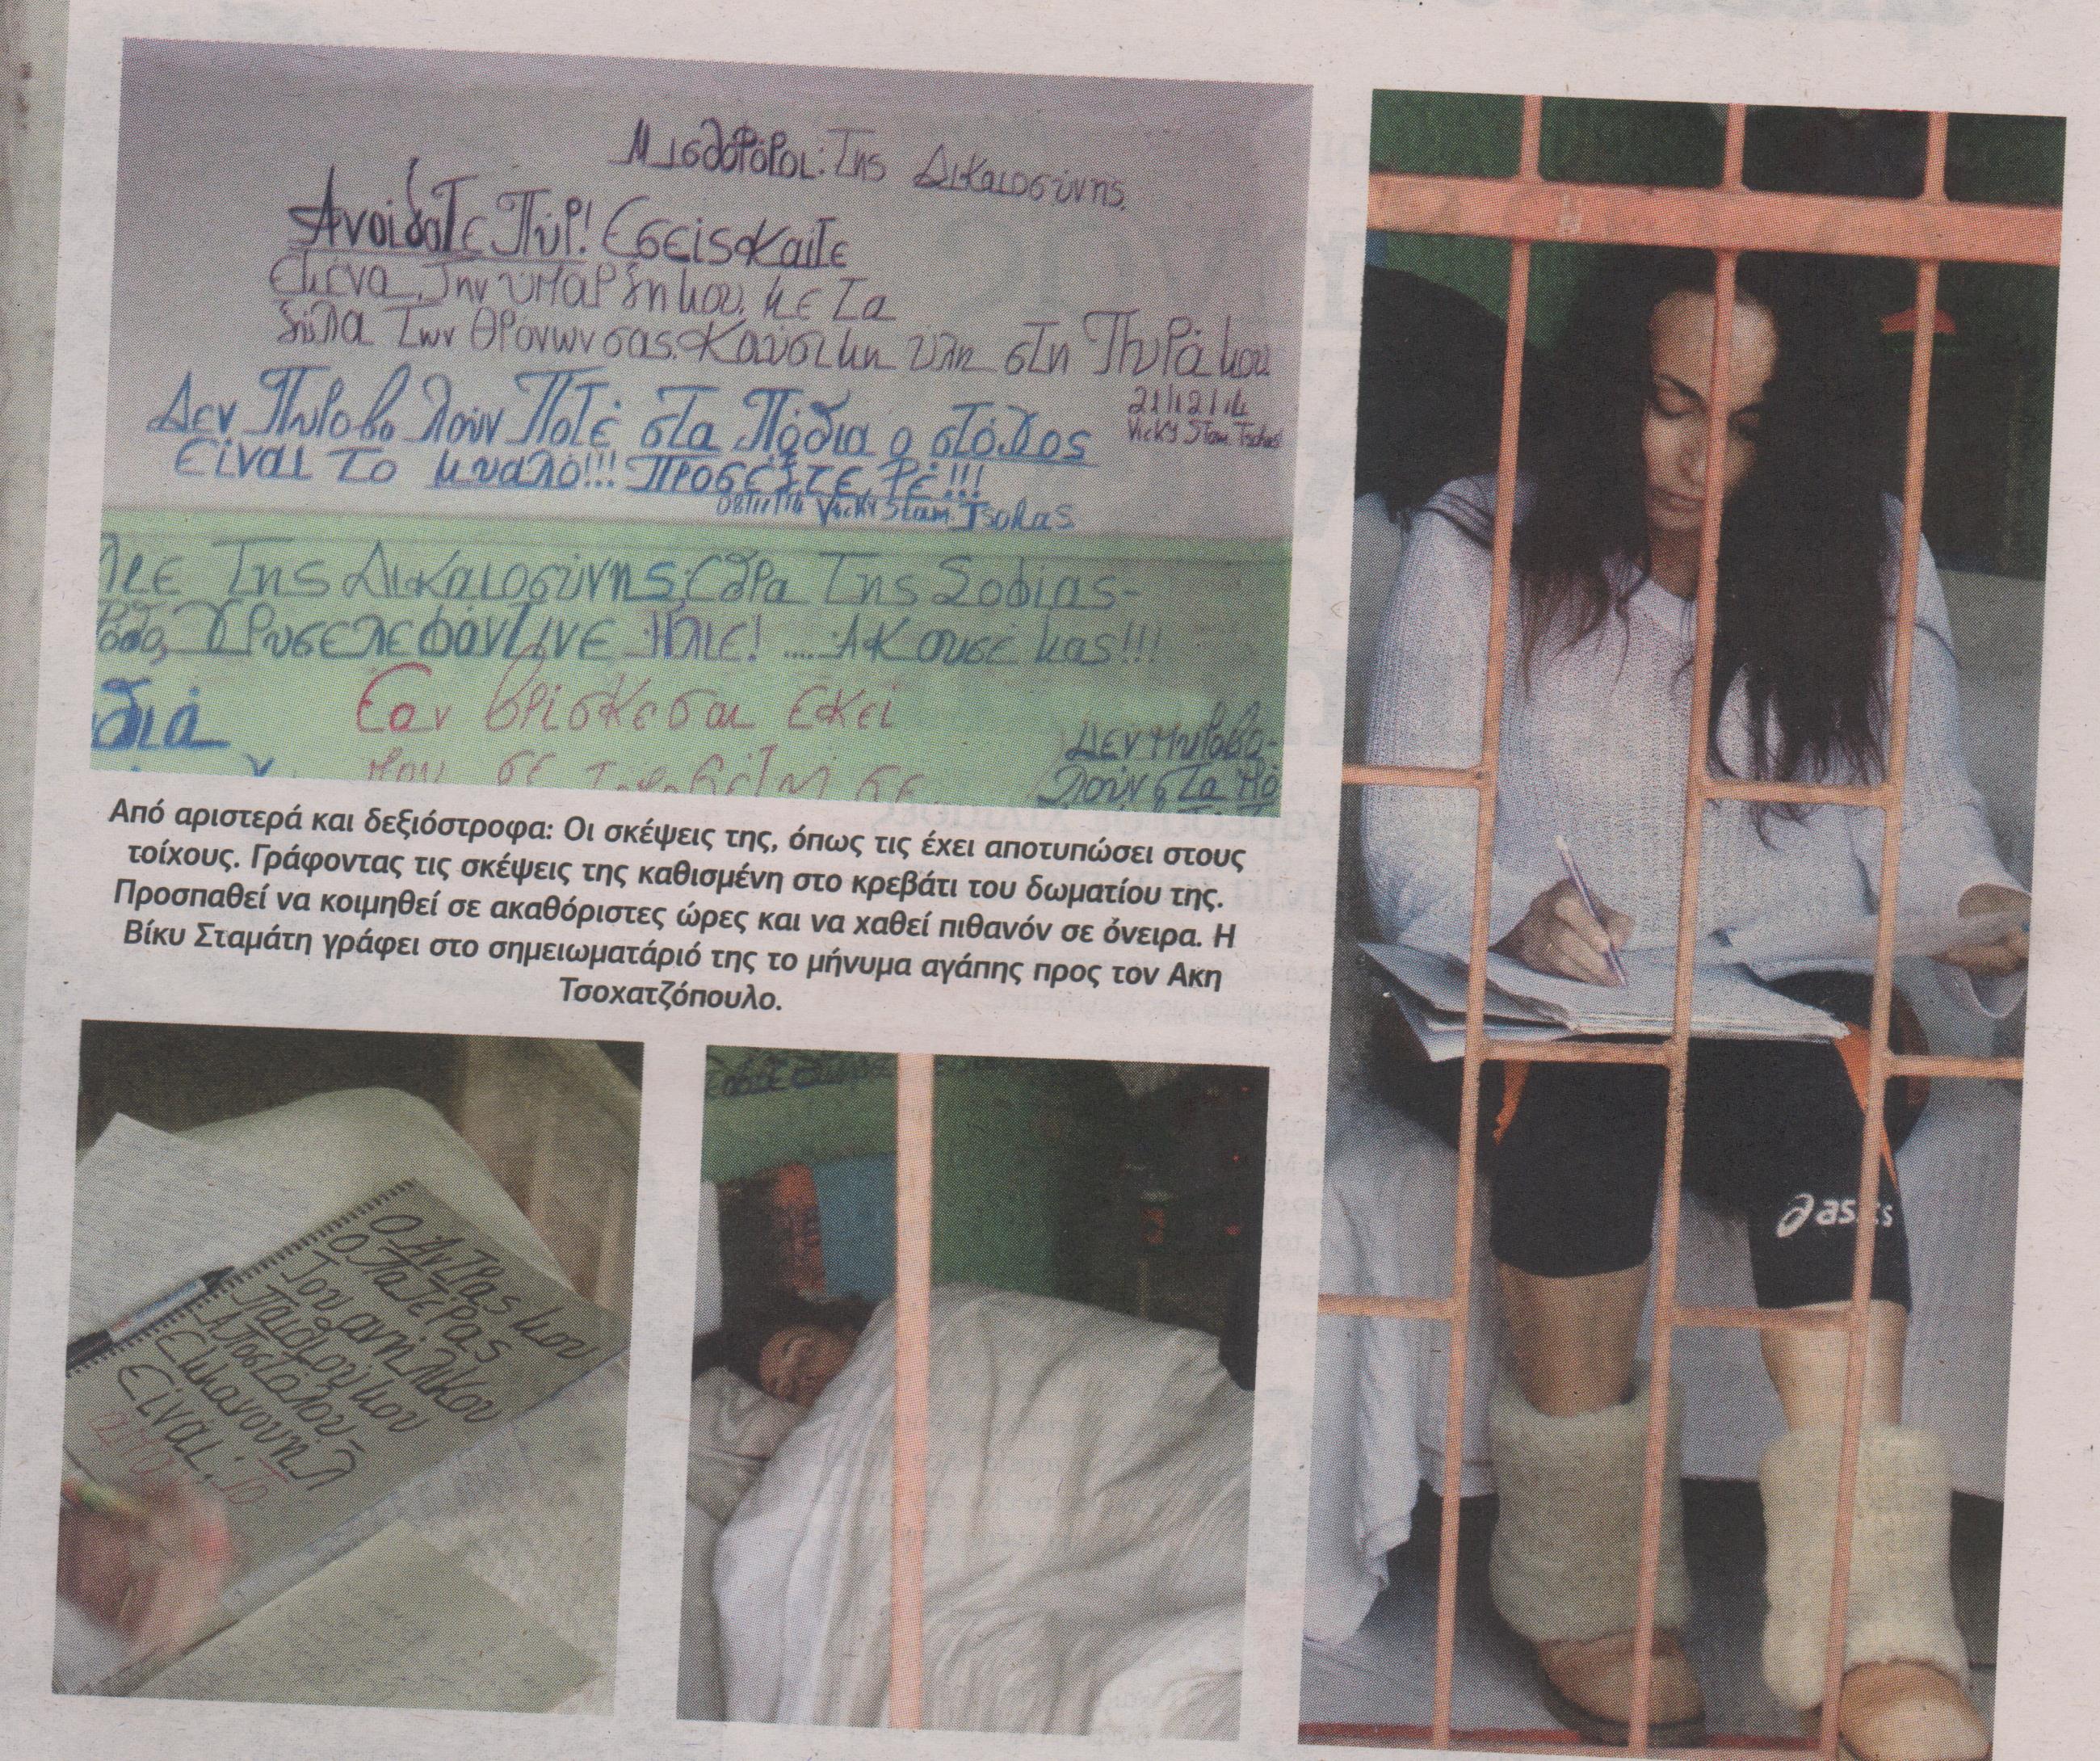 Μισθοφόροι: Της Δικαιοσύνης.
Ανοίξατε Πύρ! Εσείς καίτε
Εμένα, Την ύπαρξη μου, με Τα
ξύλα Των Θρόνων σας. Καύσιμη ύλη στη Πυρά μου
21/12/14
Vicky Stam. Tsohas
Δεν Πυροβολούν Ποτέ στα Πόδια ο στόχος
Είναι το μυαλό!!! ΠΡΟΣέξΤΕ ΡΕ!!!
08/11/14 Vicky Stam. Tsohas
Της Δικαιοσύνης; Έδρα Της Σοφίας-
Χρυσελεφάντινε Ήλιε! .....Άκουσέ μας!!!
διά
Εαν βρίσκεσαι εκεί
που σε
ΔΕΝ Πυροβο-
λούν στα Πό
Από αριστερά και δεξιόστροφα: Οι σκέψεις της, όπως τις έχει αποτυπώσει στους
τοίχους. Γράφοντας τις σκέψεις της καθισμένη στο κρεβάτι του δωματίου της.
Προσπαθεί να κοιμηθεί σε ακαθόριστες ώρες και να χαθεί πιθανόν σε όνειρα. Η
Βίκυ Σταμάτη γράφει στο σημειωματάριό της το μήνυμα αγάπης προς τον Ακη
Τσοχατζόπουλο.
Ο Άντρας μου
Ο Πατέρας
Του ανήλικου
Παιδιού μου
Αποστόλου-
Εμμανουήλ
Είναι:
asics